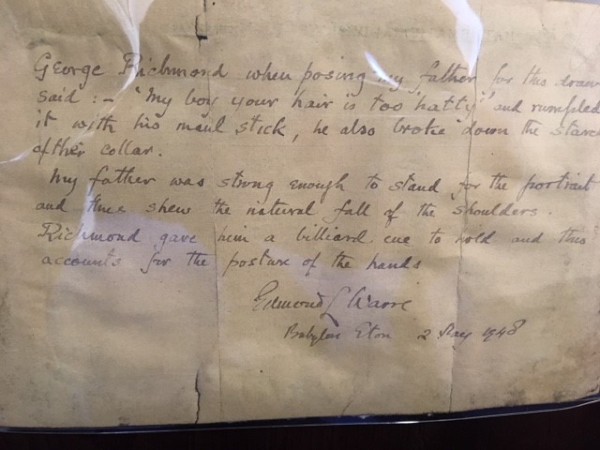 George Richmond when posing my father for this draw
said :- "My boy your hair is too natty" and rumpled
it with his maul stick, he also broke down the starch
of the collar.
My father was strong enough to stand for the portrait
and thus shew the natural fall of the shoulders.
Richmond gave him a billiard cue to hold and this
accounts for the posture of the hands
Edmond L Warre
Babylon Eton 2 May 1948